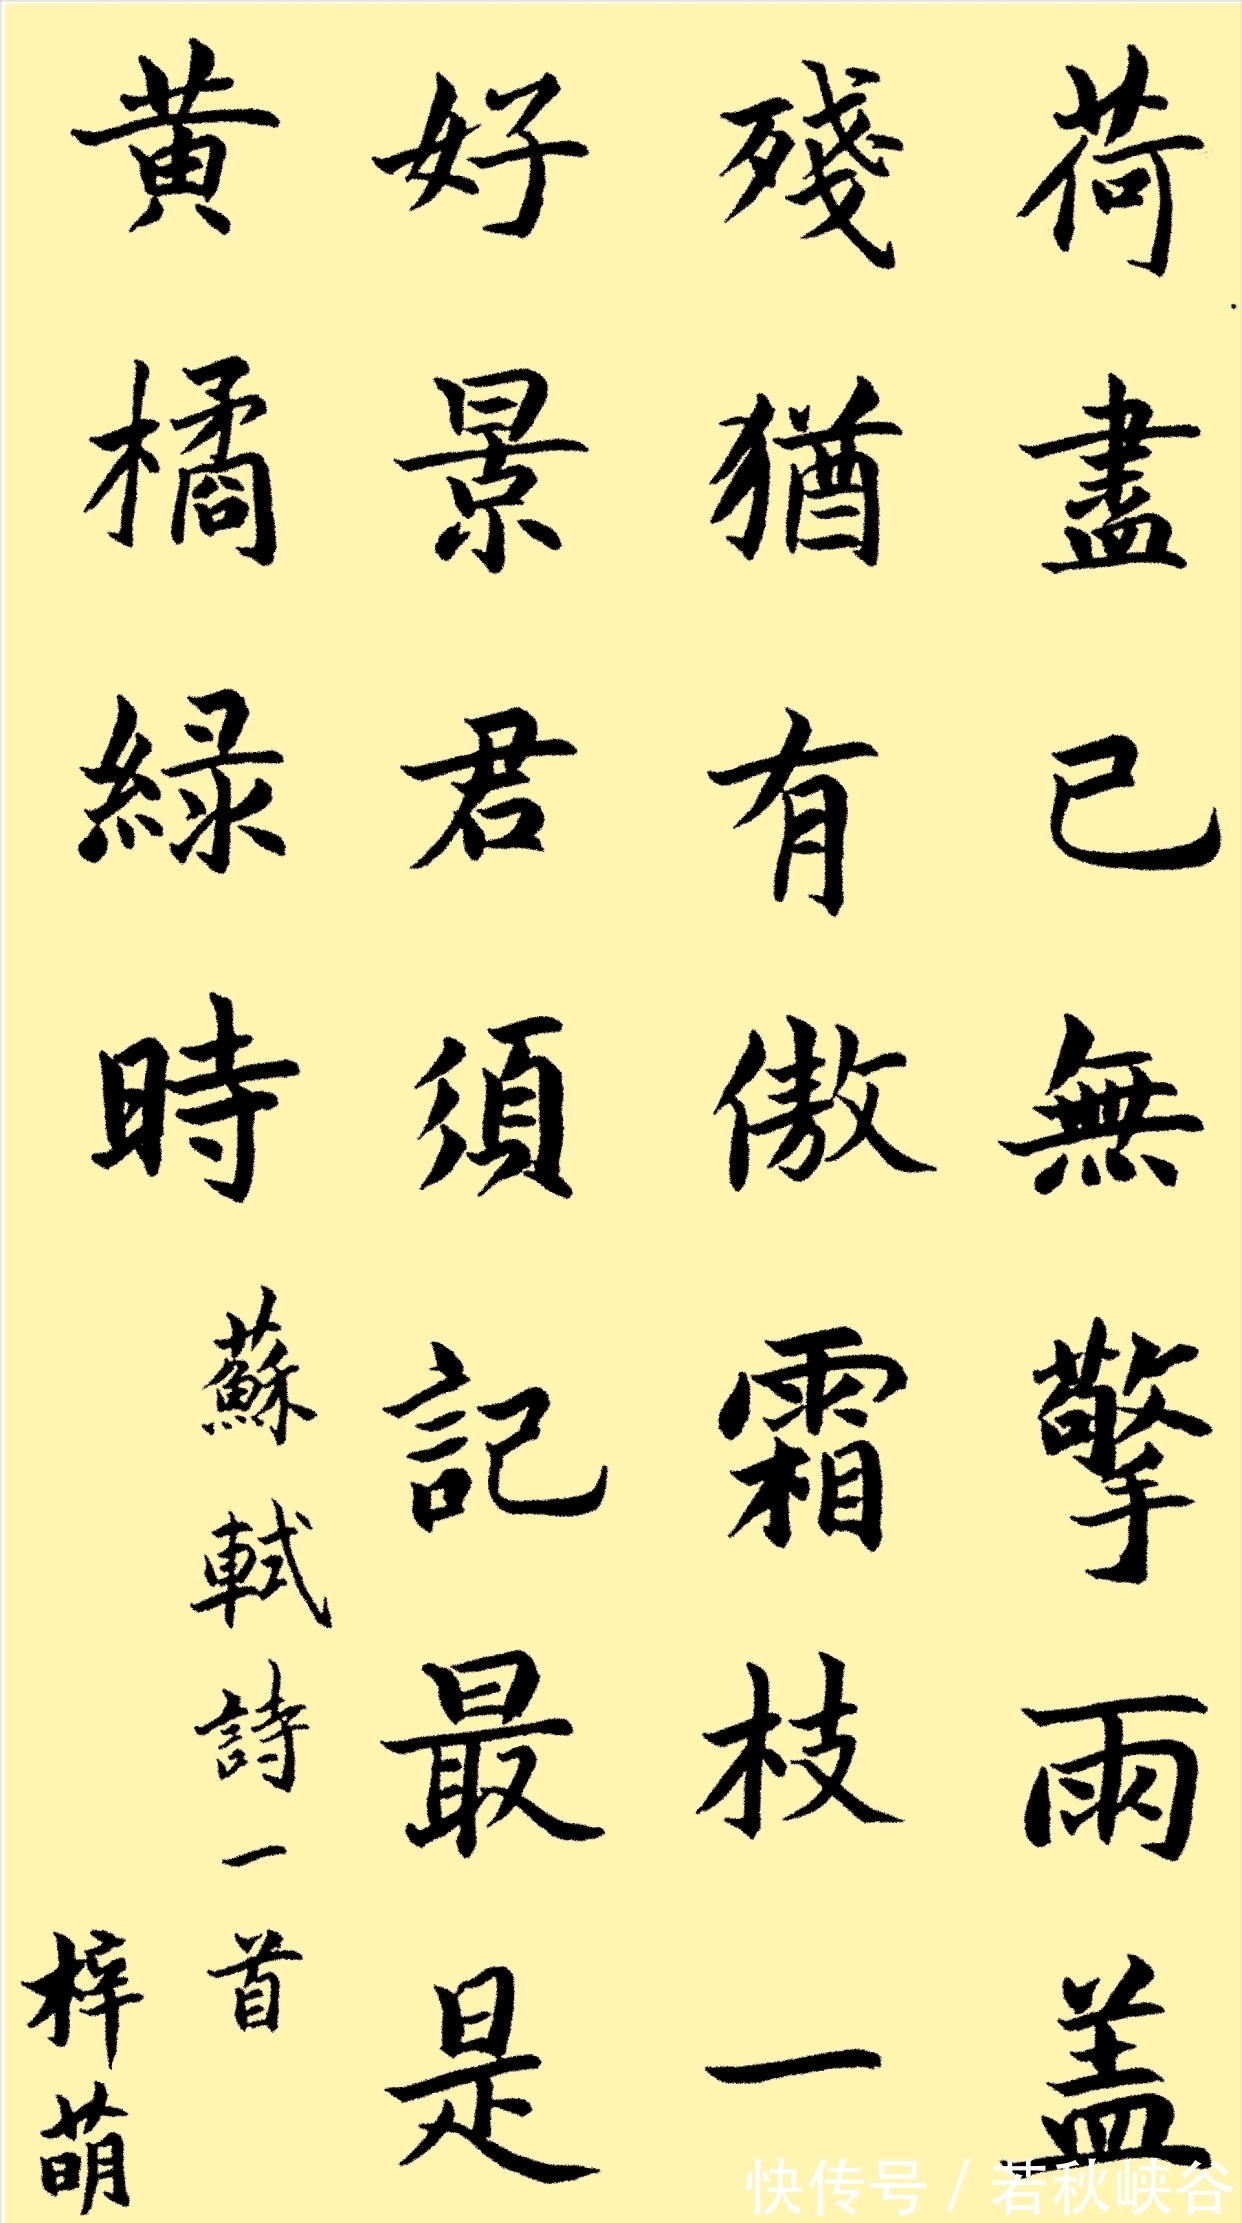 荷盡已無擎雨盖
殘猶有傲霜枝一
好景君須記最是
黄橘緑時
蘇軾詩一首
梓萌
快传号 / 若秋峡谷